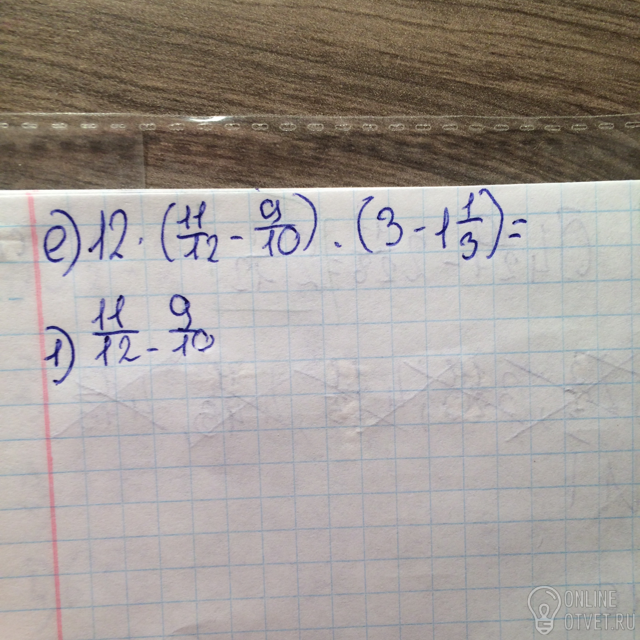 е) 12 · (11/12 - 9/10) · (3 - 1 1/3) =
1) 11/12 - 9/10
ONLINE
OTVET.RU